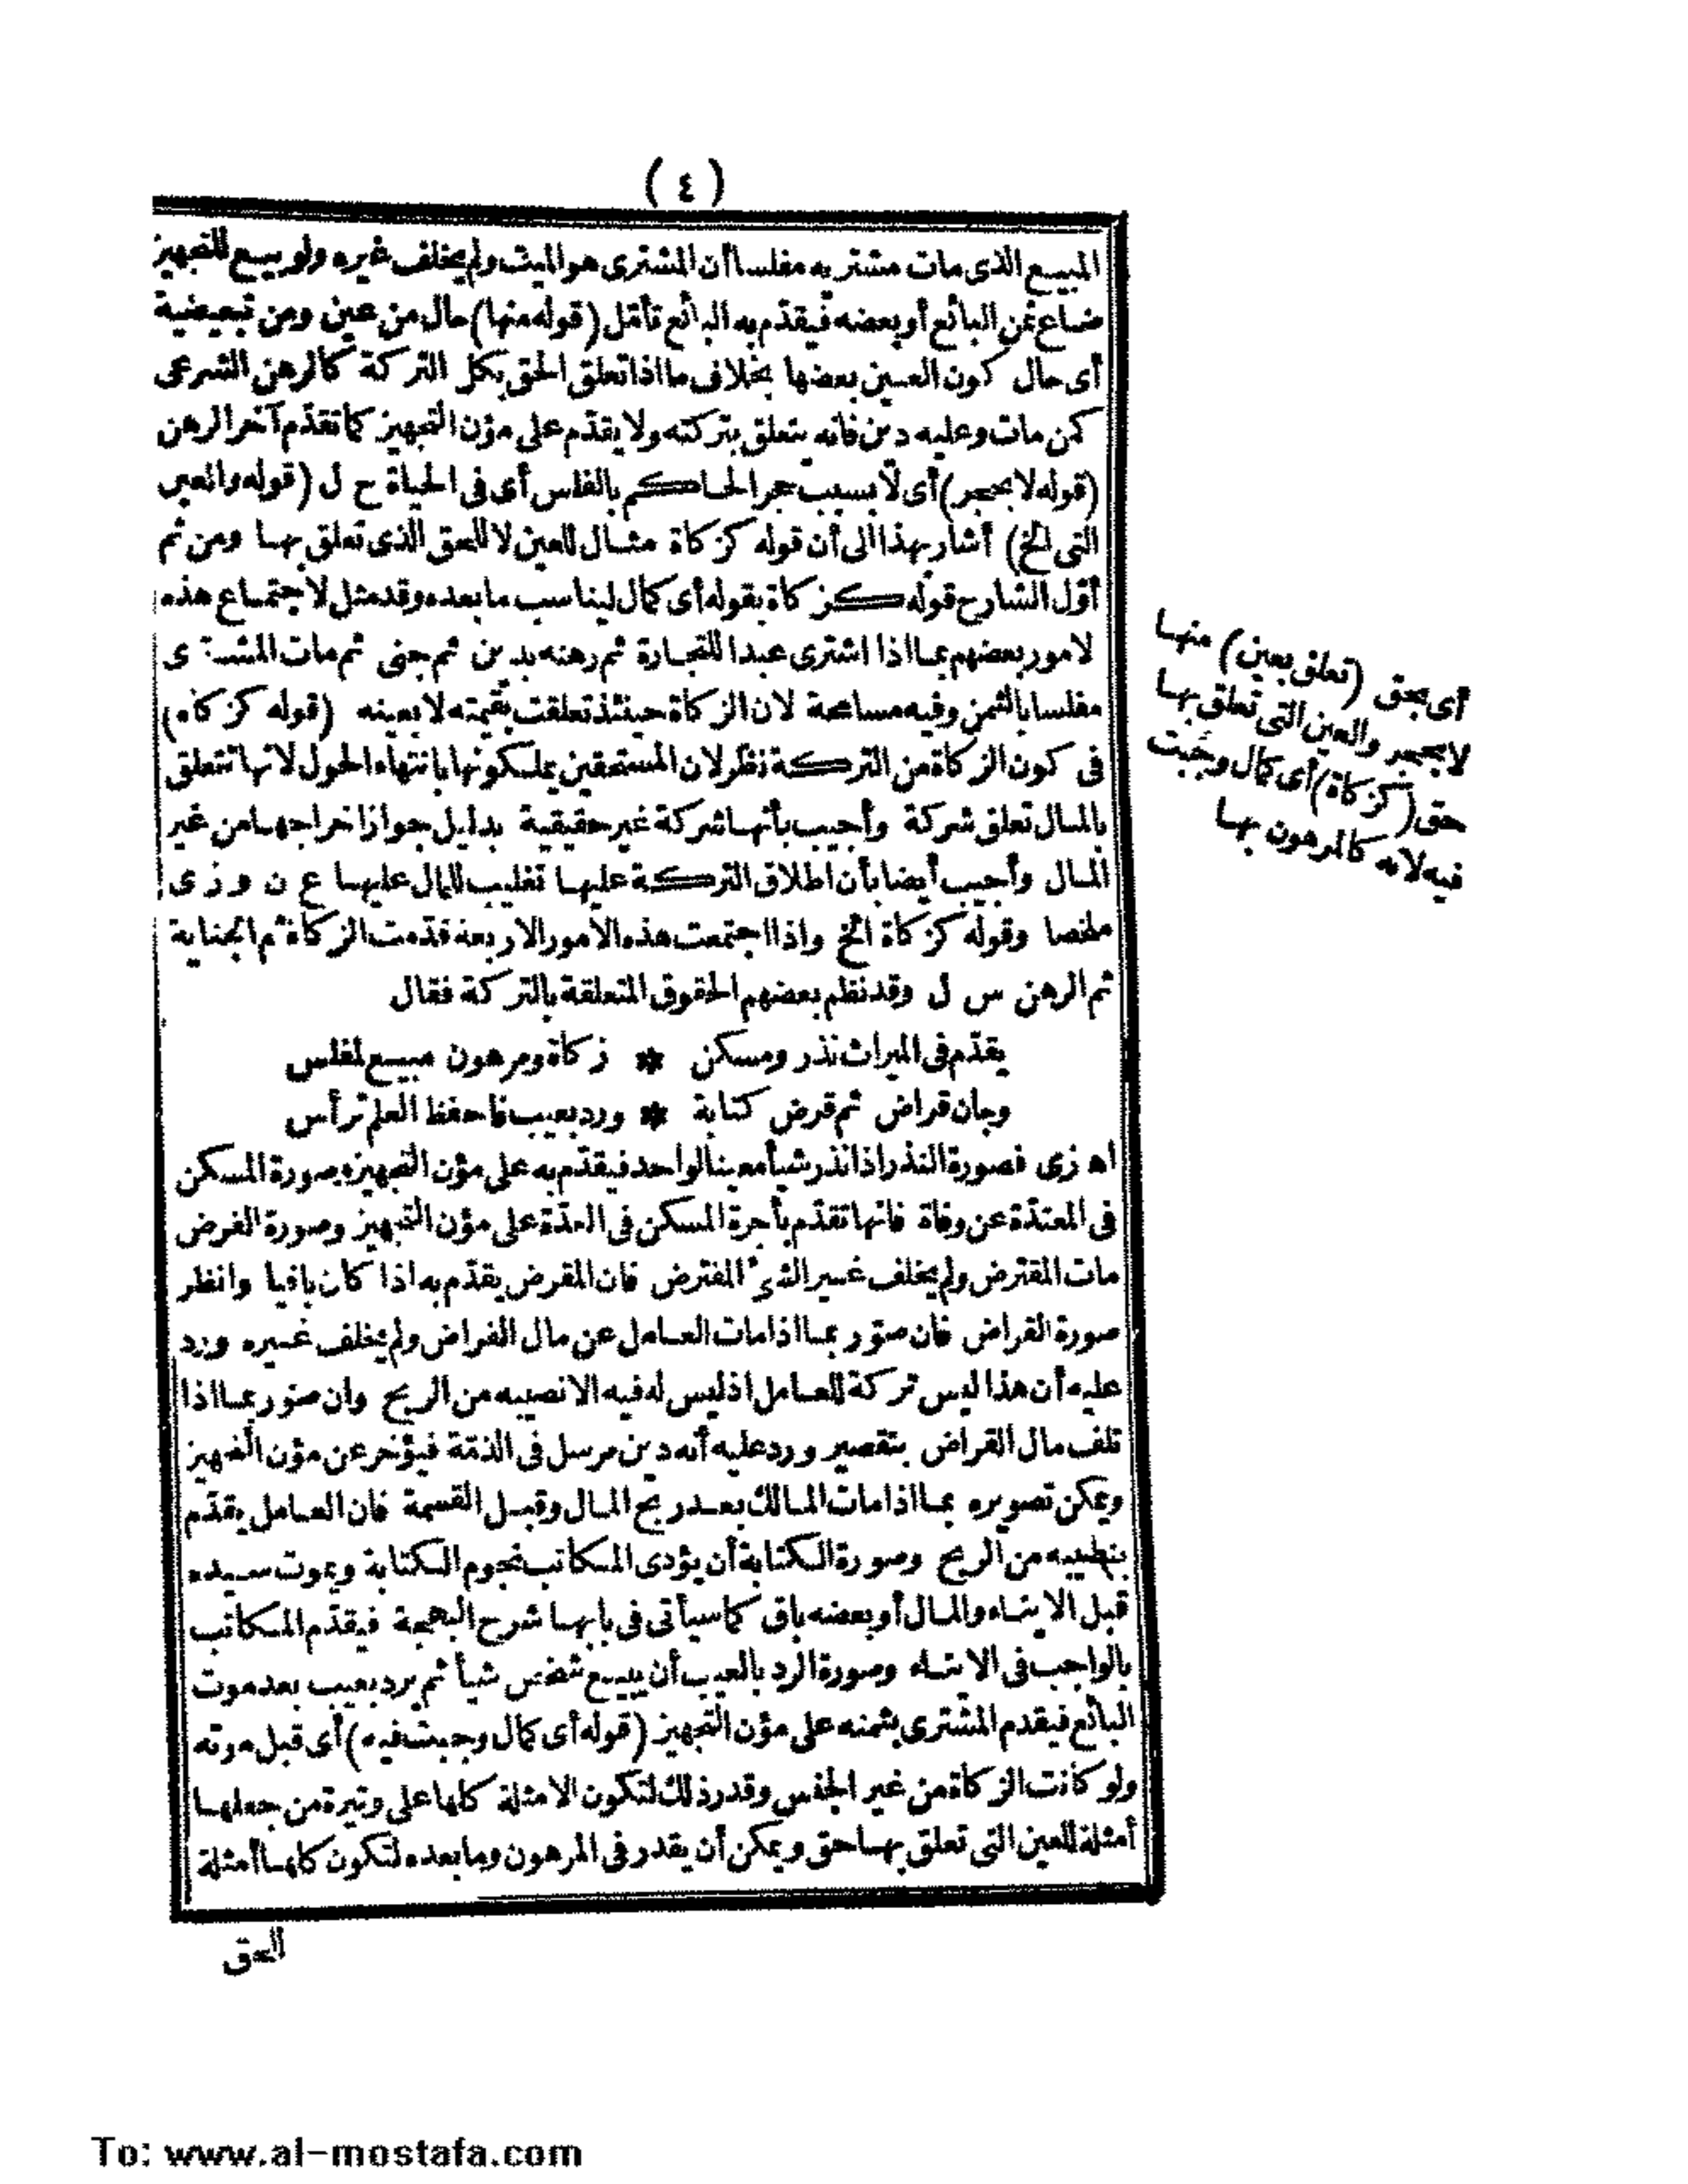 ( ٤ )
المبيع الذى مات مشتريه مفلسا أن المشترى هو الميت ولم يخلف غيره ولو بيع للتجهيز
ضاع ثمن البائع أو بعضه فيقدّم به البائع تأمّل (قوله منها) حال من عين ومن تبعيضية
أى حال كون العين بعضها بخلاف ما اذا تعلق الحق بكل التركة كالرهن الشرعى
كمن مات وعليه دين فانه يتعلق بتركته ولا يقدّم على مؤن التجهيز كما تقدّم آخر الرهن
(قوله لا بحجر) أى لا بسبب حجر الحاكم بالفلس أى فى الحياة ح ل (قوله والعين
التى الخ) أشار بهذا الى أن قوله كزكاة مثال للعين لا للحق الذى تعلق بها ومن ثم
أوّل الشارح قوله كزكاة بقوله أى كمال ليناسب ما بعده وقد مثل لاجتماع هذه
لامور بعضهم بما اذا اشترى عبدا للتجارة ثم رهنه بدين ثم جنى ثم مات المشترى
مفلسا بالثمن وفيه مسامحة لان الزكاة حينئذ تعلقت بقيمته لا بعينه (قوله كزكاه)
فى كون الزكاة من التركة نظر لان المستحقين يملكونها بانتهاء الحول لانها تتعلق
بالمال تعلق شركة وأجيب بأنها شركة غير حقيقية بدليل جواز اخراجها من غير
المال وأجيب أيضا بأن اطلاق التركة عليها تغليب للمال عليها ع ن و ز ى
ملخصا وقوله كزكاة الخ واذا اجتمعت هذه الأمور الاربعة قدّمت الزكاة ثم الجناية
ثم الرهن س ل وقد نظم بعضهم الحقوق المتعلقة بالتركة فقال
يقدّم فى الميراث نذر ومسكن * زكاة ومرهون مبيع لمفلس
وجان قراض ثم قرض كتابة * ورد بعيب فاحفظ العلم ترأس
اه زى فصورة النذر اذا نذر شيأ معينا لواحد فيقدّم به على مؤن التجهيز وصورة المسكن
فى المعتدّة عن وفاة فانها تقدّم بأجرة المسكن فى العدّة على مؤن التجهيز وصورة القرض
مات المقترض ولم يخلف غير الشئ المقترض فان المقرض يقدّم به اذا كان باقيا وانظر
صورة القراض فان صوّر بما اذا مات العامل عن مال القراض ولم يخلف غيره ورد
عليه أن هذا ليس تركة للعامل اذ ليس له فيه الا نصيبه من الربح وان صوّر بما اذا
تلف مال القراض بتقصير ورد عليه أنه دين مرسل فى الذمّة فيؤخر عن مؤن التجهيز
ويمكن تصويره بما اذا مات المالك بعد ربح المال وقبل القسمة فان العامل يقدّم
بنصيبه من الربح وصورة الكتابة أن يؤدى المكاتب نجوم الكتابة ويموت سيده
قبل الايتاء والمال أو بعضه باق كما سيأتى فى بابها شرح البهجة فيقدّم المكاتب
بالواجب فى الايتاء وصورة الرد بالعيب أن يبيع شخص شيأ ثم يرد بعيب بعد موت
البائع فيقدم المشترى بثمنه على مؤن التجهيز (قوله أى كمال وجبت فيه) أى قبل موته
ولو كانت الزكاة من غير الجنس وقدر ذلك لتكون الامثلة كلها على وتيرة من جعلها
أمثلة للعين التى تعلق بها حق ويمكن أن يقدر فى المرهون وما بعده لتكون كلها أمثلة
للحق
أى بحق (تعلق بعين) منها
لا بحجر والعين التى تعلق بها
حق (كزكاة) أى كمال وجبت
فيه لانه كالمرهون بها
To: www.al-mostafa.com